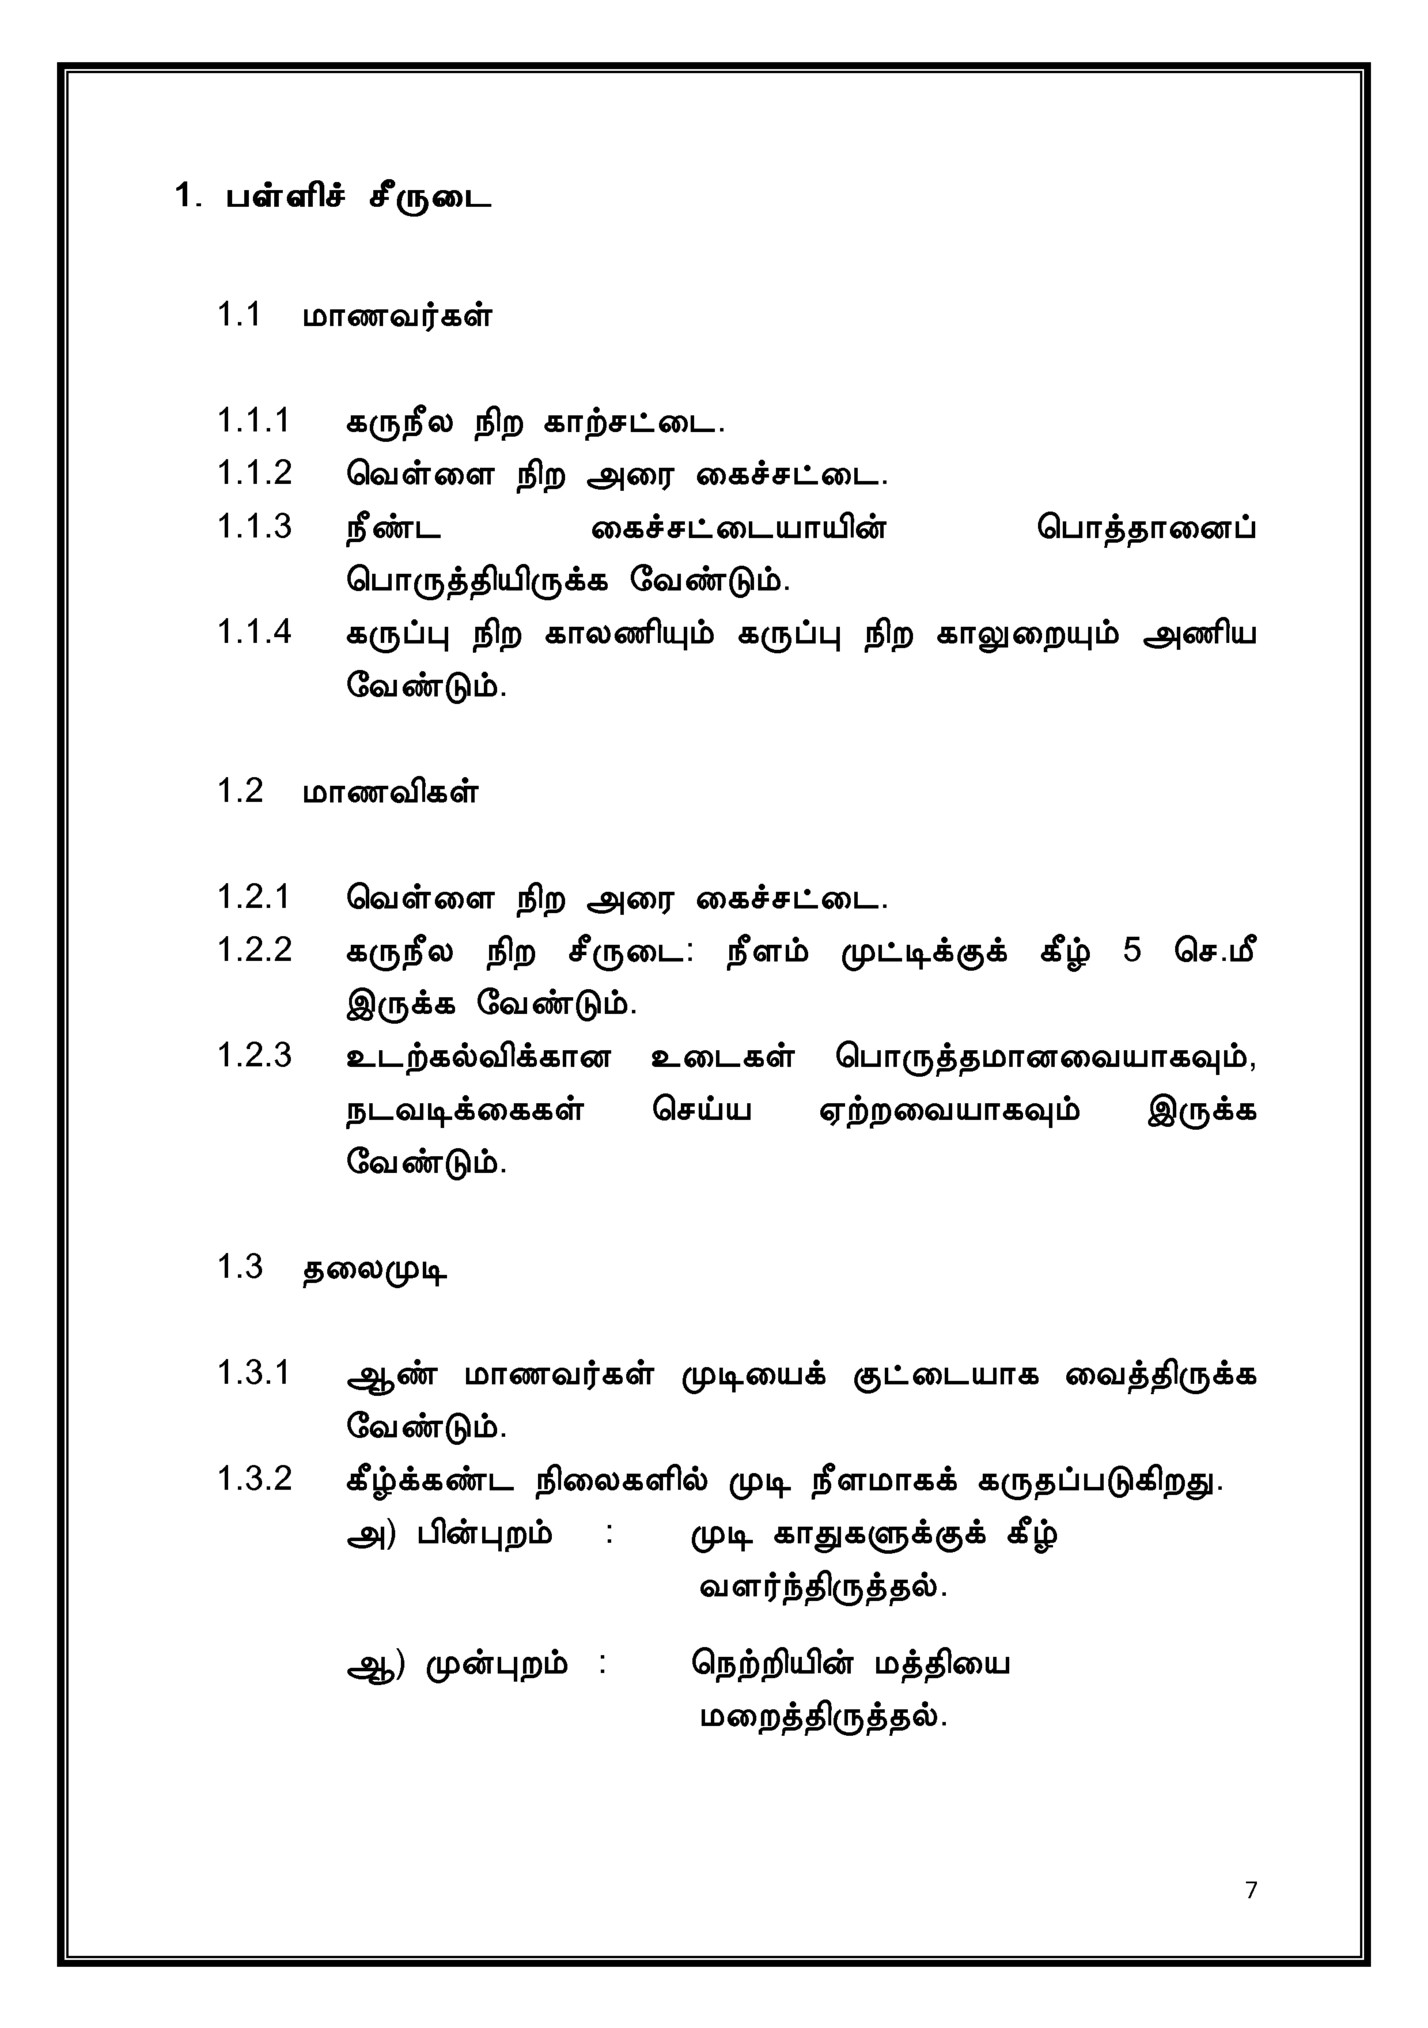 1. பள்ளிச் சீருடை
1.1 மாணவர்கள்
1.1.1 கருநீல நிற காற்சட்டை.
1.1.2 வெள்ளை நிற அரை கைச்சட்டை.
1.1.3 நீண்ட கைச்சட்டையாயின் பொத்தானைப்
பொருத்தியிருக்க வேண்டும்.
1.1.4 கருப்பு நிற காலணியும் கருப்பு நிற காலுறையும் அணிய
வேண்டும்.
1.2 மாணவிகள்
1.2.1 வெள்ளை நிற அரை கைச்சட்டை.
1.2.2 கருநீல நிற சீருடை: நீளம் முட்டிக்குக் கீழ் 5 செ.மீ
இருக்க வேண்டும்.
1.2.3 உடற்கல்விக்கான உடைகள் பொருத்தமானவையாகவும்,
நடவடிக்கைகள் செய்ய ஏற்றவையாகவும் இருக்க
வேண்டும்.
1.3 தலைமுடி
1.3.1 ஆண் மாணவர்கள் முடியைக் குட்டையாக வைத்திருக்க
வேண்டும்.
1.3.2 கீழ்க்கண்ட நிலைகளில் முடி நீளமாகக் கருதப்படுகிறது.
அ) பின்புறம் : முடி காதுகளுக்குக் கீழ்
வளர்ந்திருத்தல்.
ஆ) முன்புறம் : நெற்றியின் மத்தியை
மறைத்திருத்தல்.
7